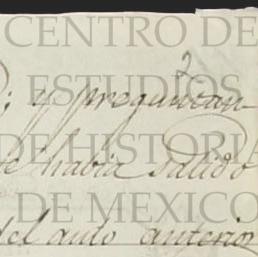 CENTRO DE
ESTUDIOS
DE HISTORIA
DE MEXICO
; y preguntan
se habia salido
del auto anterior